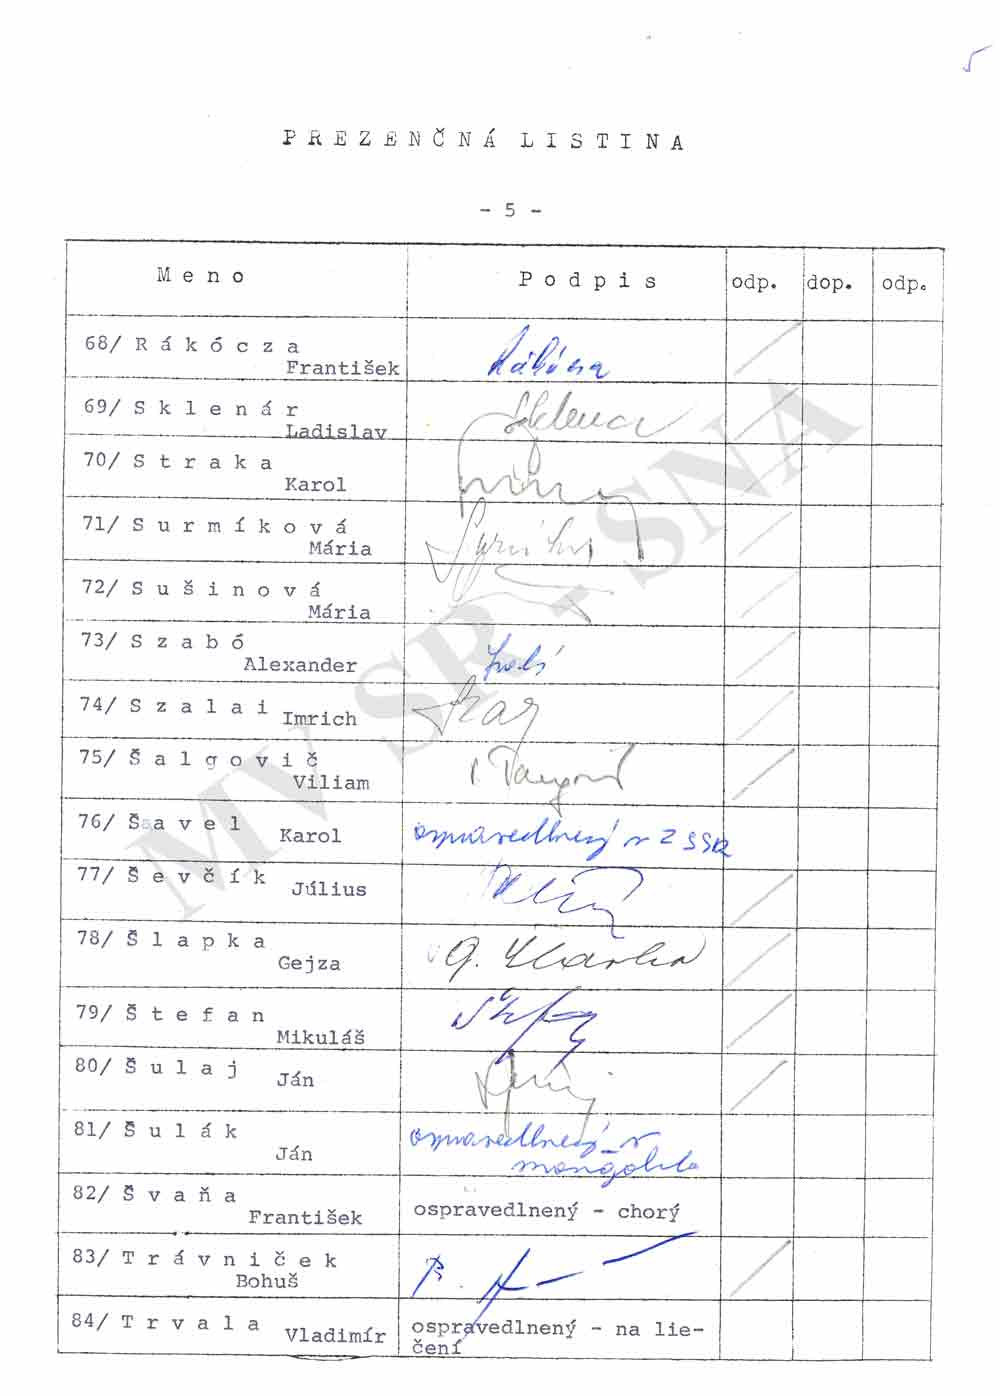 5
PREZENČNÁ LISTINA
- 5 -
Meno Podpis odp. dop. odp.
68/ Rákócza
František
69/ Sklenár
Ladislav
70/ Straka
Karol
71/ Surmíková
Mária
72/ Sušinová
Mária
73/ Szabó
Alexander
74/ Szalai
Imrich
75/ Šalgovič
Viliam
76/ Šavel
Karol ospravedlnený v ZSSR
77/ Ševčík
Július
78/ Šlapka
Gejza
79/ Štefan
Mikuláš
80/ Šulaj
Ján
81/ Šulák ospravedlnený v
Ján
82/ Švaňa
František ospravedlnený - chorý
83/ Trávniček
Bohuš
84/ Trvala
Vladimír ospravedlnený - na lie-
čení
MV SR - SNA